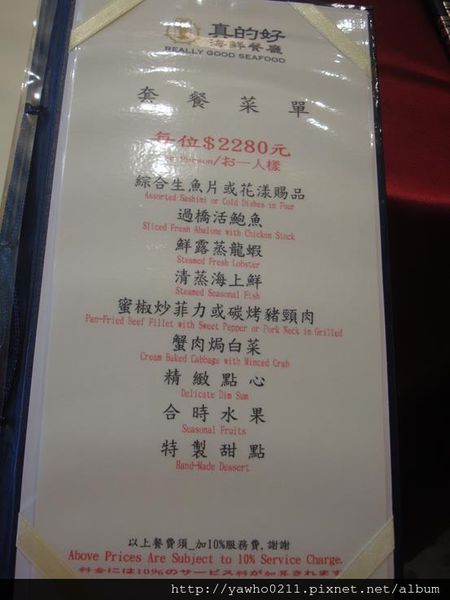 真的好
海鮮餐廳
REALLY GOOD SEAFOOD
套餐菜單
每位$2280元
Per Person/お一人様
綜合生魚片或花漾賜品
Assorted Sashimi or Cold Dishes in Four
過橋活鮑魚
Sliced Fresh Abalone with Chicken Stock
鮮露蒸龍蝦
Steamed Fresh Lobster
清蒸海上鮮
Steamed Seasonal Fish
蜜椒炒菲力或碳烤豬頸肉
Pan-Fried Beef Fillet with Sweet Pepper or Pork Neck in Grilled
蟹肉焗白菜
Cream Baked Cabbage with Minced Crab
精緻點心
Delicate Dim Sum
合時水果
Seasonal Fruits
特製甜點
Hand-Made Dessert
以上餐費須_加10%服務費,謝謝
Above Prices Are Subject to 10% Service Charge.
料金には10%のサービス料が加算されます
http://yawho0211.pixnet.net/album